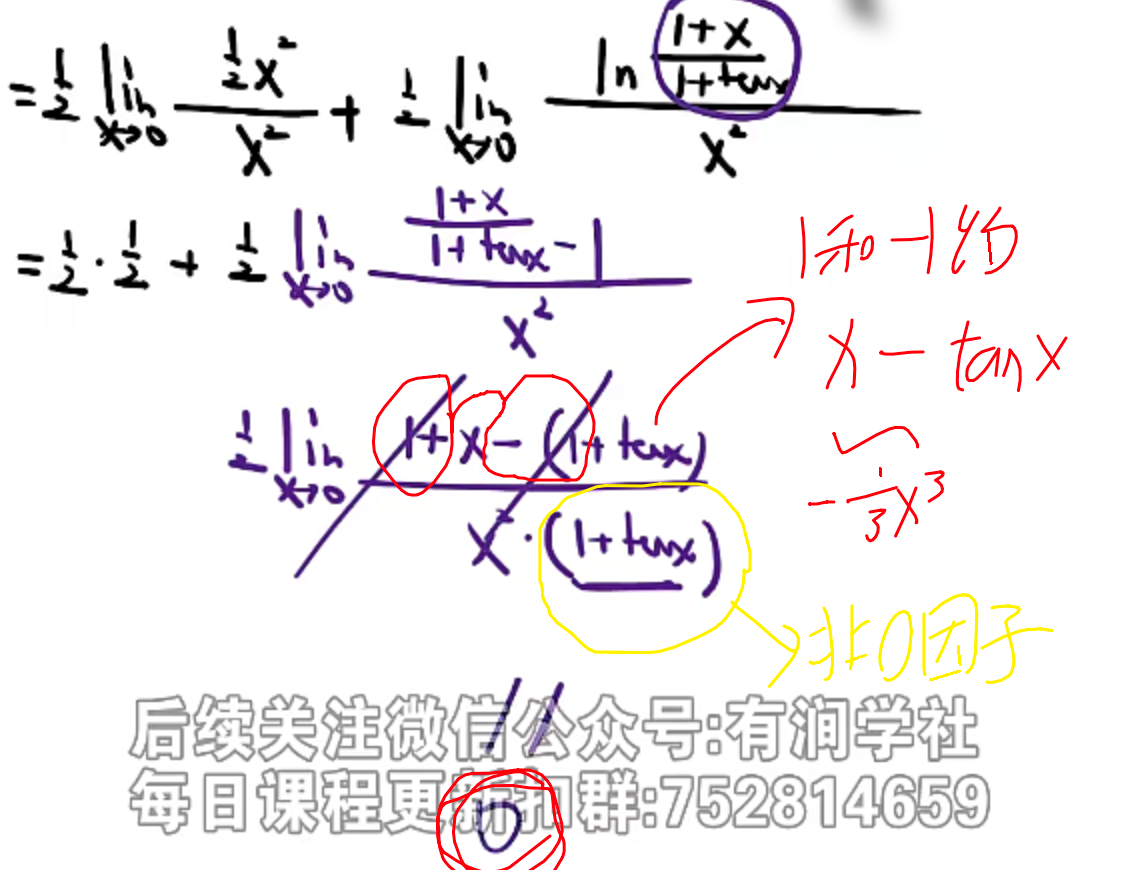 = 1/2 lim x→0 (1/2 x²)/x² + 1/2 lim x→0 ln((1+x)/(1+tanx))/x²
= 1/2 · 1/2 + 1/2 lim x→0 ((1+x)/(1+tanx) - 1)/x²
1和-1约
x - tanx
~ -1/3 x³
1/2 lim x→0 (1+x-(1+tanx))/(x²·(1+tanx))
非0因子
后续关注微信公众号:有润学社
每日课程更新扣群:752814659
0